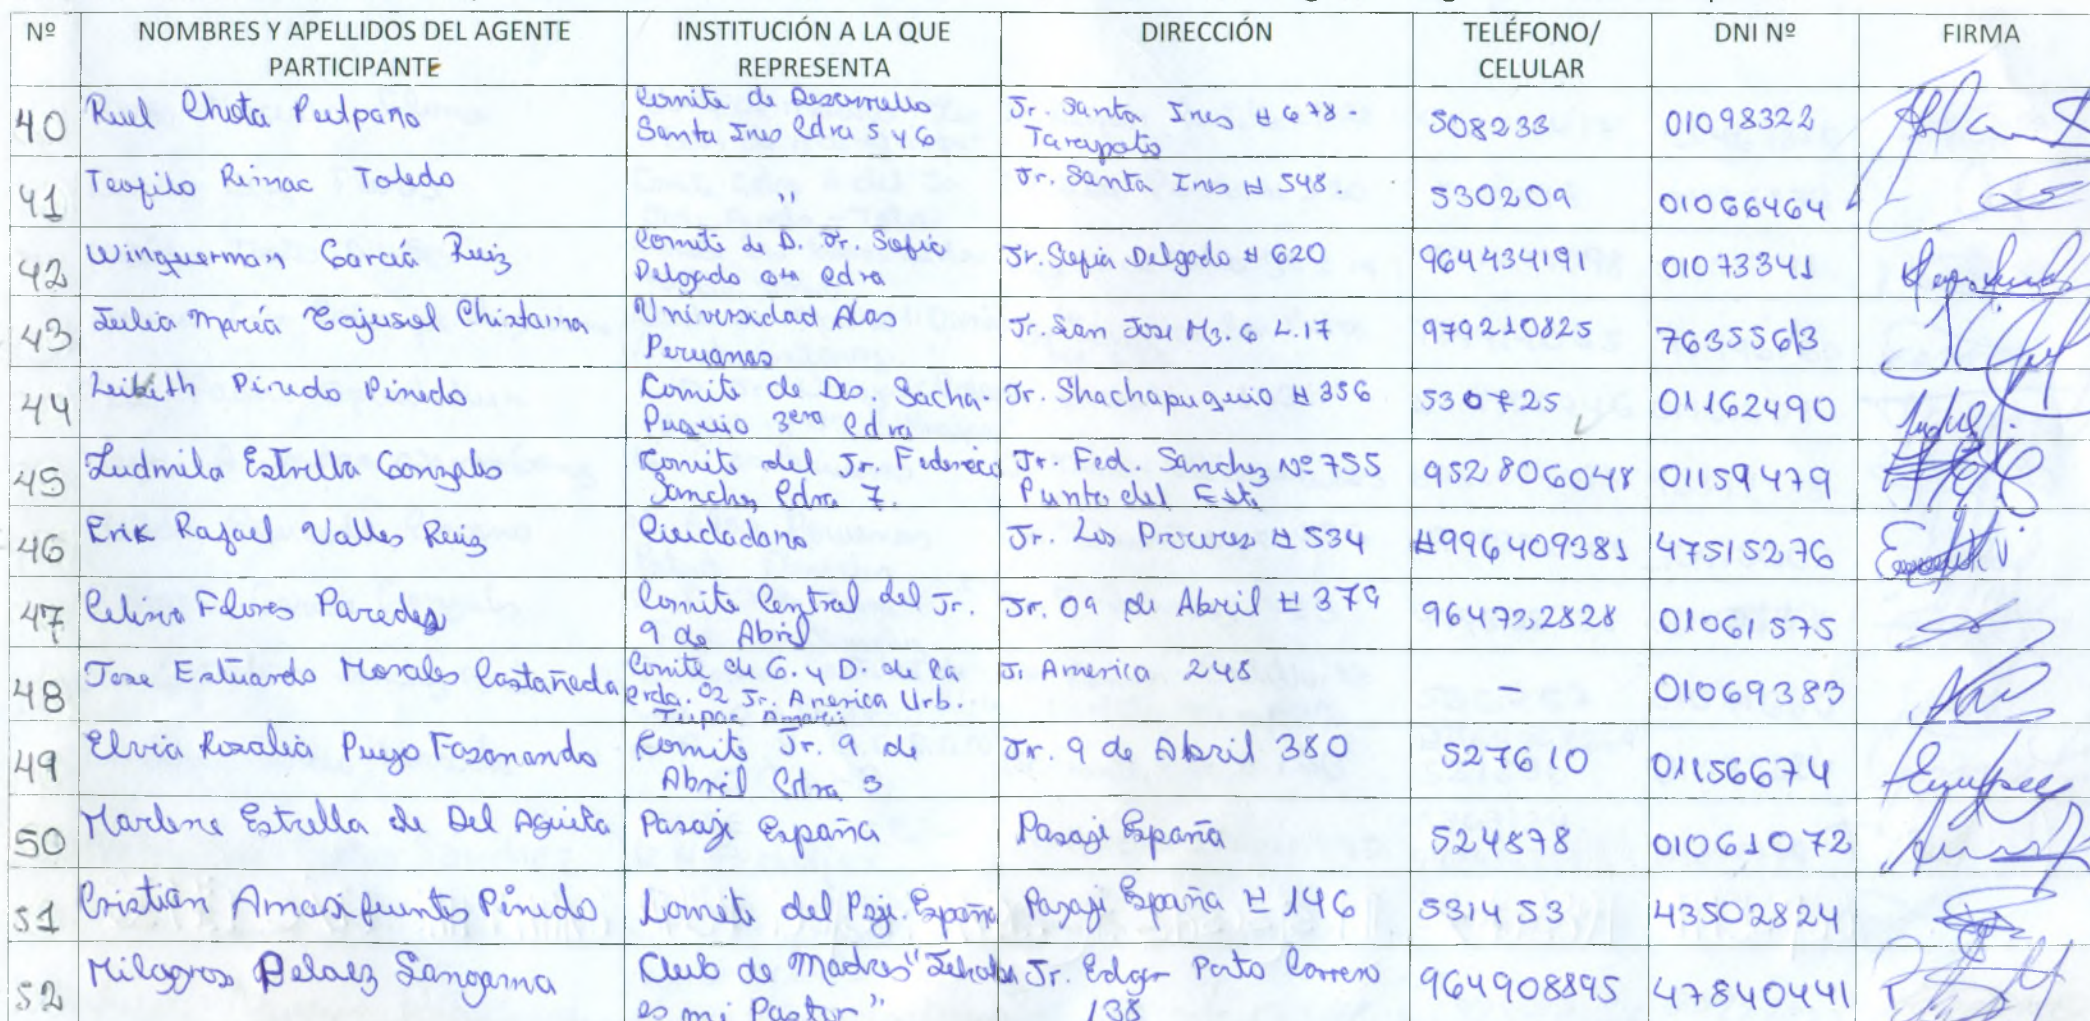 Nº NOMBRES Y APELLIDOS DEL AGENTE PARTICIPANTE INSTITUCIÓN A LA QUE REPRESENTA DIRECCIÓN TELÉFONO/ CELULAR DNI Nº FIRMA
40 Ruel Chota Putpano Comite de Desarrollo Santa Ines Cdra 5 y 6 Jr. Santa Ines # 678 - Tarapoto 508233 01098322
41 Teofilo Rimac Toledo " Jr. Santa Ines # 548. 530209 01066464
42 Winquerman García Ruiz Comite de D. Jr. Sofia Delgado Cdra Jr. Sofia Delgado # 620 964434191 01073341
43 Julia María Cajusol Chistama Universidad Alas Peruanas Jr. San Jose Mz. 6 L.17 979210825 76355613
44 Pinedo Pinedo Comite de Des. Sacha- Puquio 3era Cdra Jr. Shachapuquio # 356 530725 01162490
45 Ludmila Estrella Gonzales Comite del Jr. Federico Sanchez Cdra 7. Jr. Fed. Sanchez Nº 755 Punta del Este 952806048 01159479
46 Erik Rafael Valles Ruiz Ciudadano Jr. Los Proceres # 534 #996409381 47515276
47 Celina Flores Paredes Comite Central del Jr. 9 de Abril Jr. 09 de Abril # 379 964722828 01061575
48 Jose Estuardo Morales Castañeda Comite de G. y D. de la crda. 02 Jr. America Urb. Tupac Amaru J. America 248 - 01069383
49 Elvia Rosalia Puyo Fasanando Comite Jr. 9 de Abril Cdra 3 Jr. 9 de Abril 380 527610 01156674
50 Marlene Estrella de Del Aguila Pasaje España Pasaje España 524878 01061072
51 Cristian Amasifuentes Pinedo Comite del Psje. España Pasaje España # 146 531453 43502824
52 Milagros Pelaez Sangama Club de Madres "Jehova es mi Pastor" Jr. Edgar Porto Correro 138 964908895 47840441